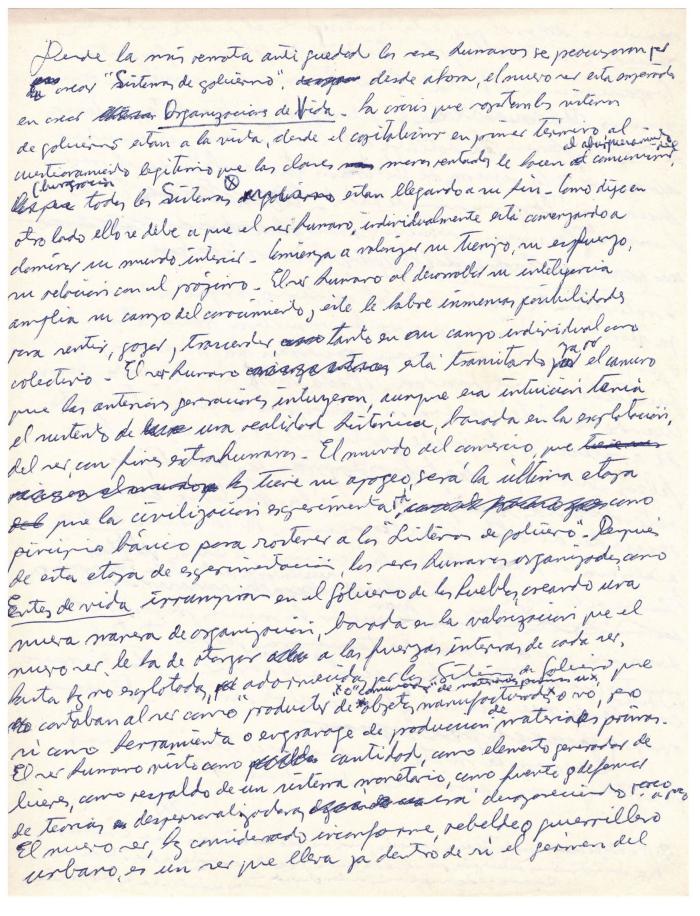 Desde la más remota antiguedad los seres humanos se preocuparon por
crear "Sistemas de gobierno". desde ahora, el nuevo ser esta empeñado
en crear Organizaciones de Vida. La crisis que soportan los sistemas
de gobierno estan a la vista, desde el capitalismo en primer termino, al
cuestionamiento legitimo que las clases menos rentadas le hacen al comunismo,
(burocracia todos los Sistemas estan llegando a su fin. Como dije en
otro lado ello se debe a que el ser humano, individualmente está comenzando a
dominar su mundo interior. Comienza a valorizar su tiempo, su esfuerzo,
su relación con el prójimo. El ser humano al desarrollar su inteligencia
amplia su campo del conocimiento, este le habre inmensas posibilidades
para sentir, gozar, trascender, tanto en su campo individual como
colectivo. El ser humano está transitando ya por el camino
que las anteriores generaciones intuyeron, aunque esa intuición tenia
el sustento de una realidad histórica, basada en la explotación,
del ser, con fines extrahumanos. El mundo del comercio, que
hoy tiene su apogeo, será la última etapa
que la civilización experimentará, como
principio básico para sostener a los "Sistemas de gobierno". Después
de esta etapa de experimentación, los seres humanos organizados como
Entes de vida irrumpiran en el Gobierno de los Pueblos, creando una
nueva manera de organización, basada en la valorización que el
nuevo ser, le ha de otorgar a las fuerzas internas de cada ser,
hasta hoy no explotadas, adormecidas por los Sistemas de Gobierno, que
contaban al ser como "productor" o "consumidor" de materias primas de objetos manufacturados o no, pero
si como herramienta o engranage de producción de materias primas.
El ser humano visto como cantidad, como elemento generador de
bienes, como respaldo de un sistema monetario, como fuente defensor
de teorias despersonalizadoras irá desapareciendo poco a poco
El nuevo ser, hoy considerado inconforme, rebelde o guerrillero
urbano, es un ser que lleva ya dentro de si el gérmen del